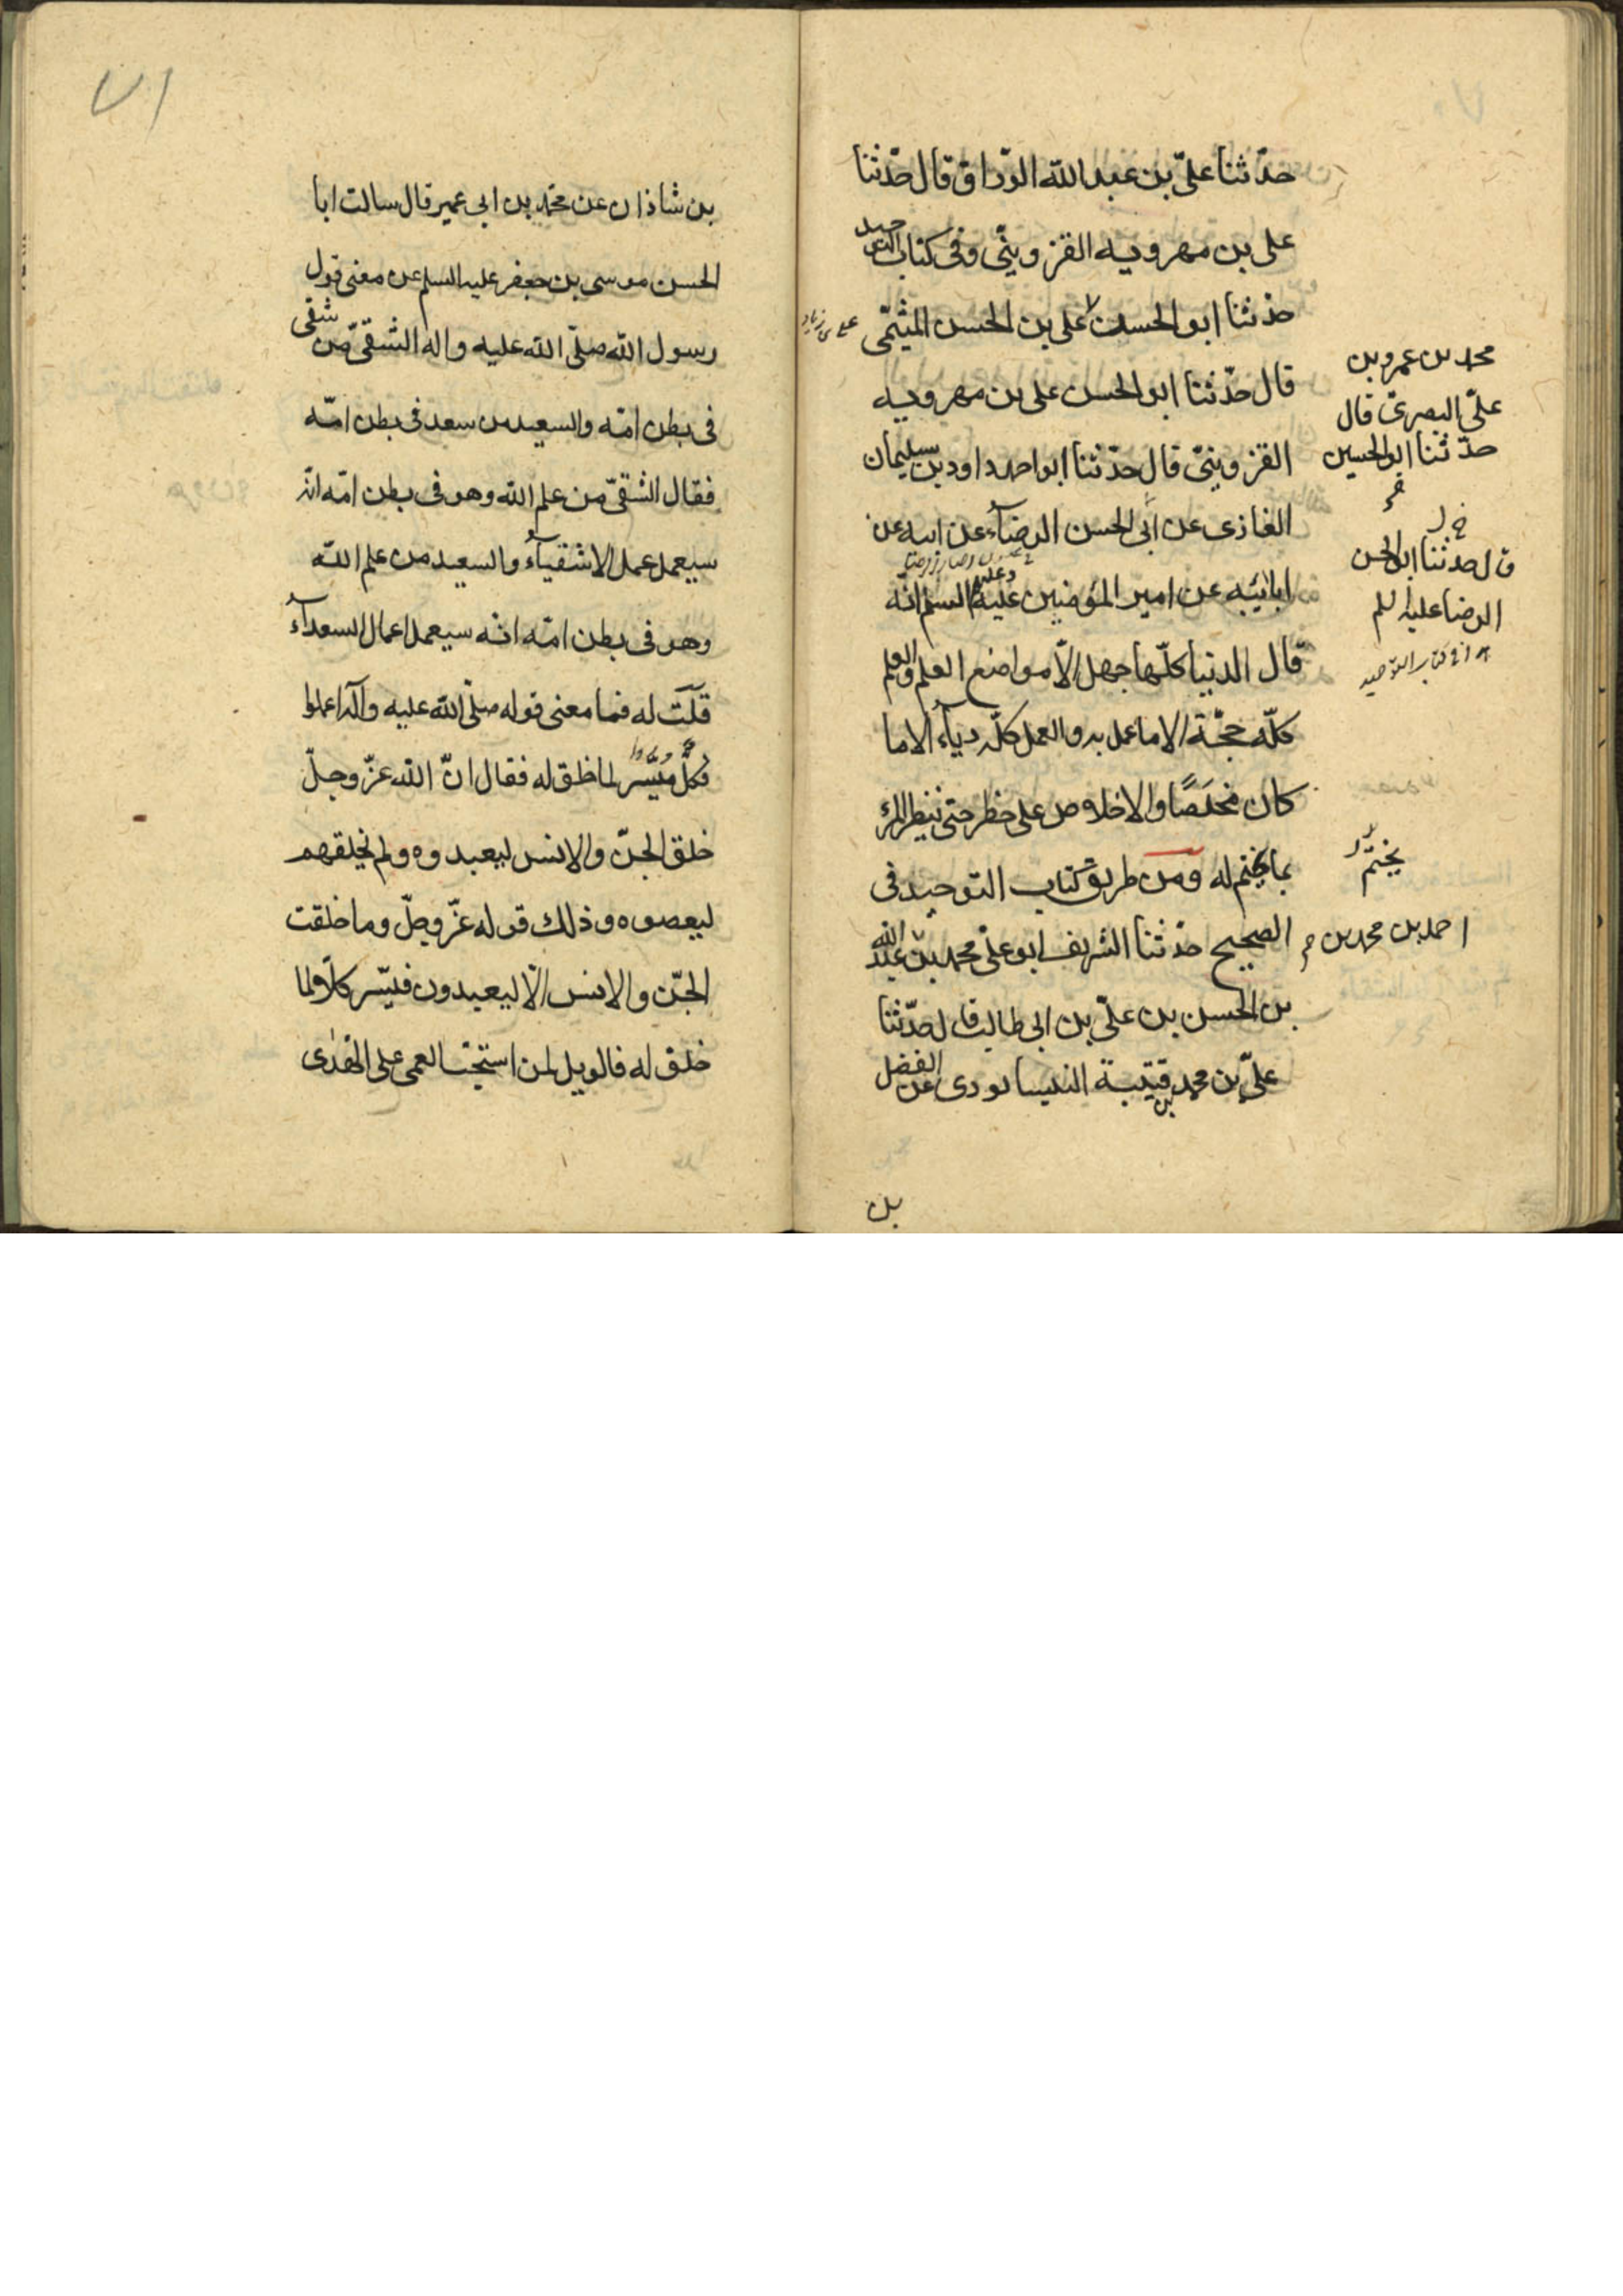 حدّثنا علىّ بن عبد اللّه الورّاق قال حدّثنا
على بن مهرويه القزوينّى وفى كتاب التوحيد
حدثنا ابو الحسين على بن الحسن المثنّى
قال حدّثنا ابو الحسن على بن مهرويه
القزوينىّ قال حدّثنا ابو احمد داود بن سليمان
الغازى عن ابى الحسن الرضآء عن ابيه عن
ابائيه عن امير المؤمنين عليه السلم انّه
قال الدنيا كلّها جهل الّا مواضع العلم والعلم
كلّه حجّة الا ما عمل به والعمل كلّه رياء الا ما
كان مخلَصًا والاخلاص على خطر حتى ينظر المرء
بما يختم له ومن طريق كتاب التوحيد فى
الصحيح حدثنا الشريف ابو علىّ محمد بن عبد اللّه
بن الحسن بن علىّ بن ابى طالب قال حدّثنا
علىّ بن محمد بن قتيبة النيسابورى عن الفضل
بن
محمد بن عمرو بن
علىّ البصرىّ قال
حدّثنا ابو الحسين
قال حدثنا ابو الحسن
الرضا عليه السلم
يختم
احمد بن محمد بن
٧١
بن شاذان عن محمّد بن ابى عمير قال سالت ابا
الحسن موسى بن جعفر عليه السلم عن معنى قول
رسول اللّه صلّى اللّه عليه واله الشقىّ من شقى
فى بطن امّه والسعيد من سعد فى بطن امّه
فقال الشقىّ من علم اللّه وهو فى بطن امّه انّه
سيعمل عمل الاشقيآء والسعيد من علم اللّه
وهو فى بطن امّه انه سيعمل اعمال السعدآء
قلت له فما معنى قوله صلّى اللّه عليه وآله اعملوا
فكلّ ميسّر لما خلق له فقال انّ اللّه عزّ وجلّ
خلق الجنّ والانس ليعبدوه ولم يخلقهم
ليعصوه وذلك قوله عزّ وجلّ وما خلقت
الجنّ والانس الّا ليعبدون فيسّر كلّا لما
خلق له فالويل لمن استحبّ العمى على الهدى